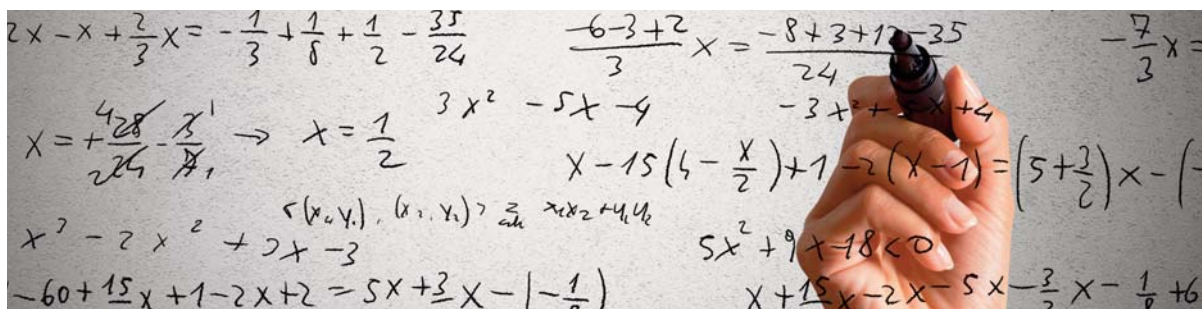 2x - x + 2/3 x = - 1/3 + 1/8 + 1/2 - 35/24
(-6-3+2)/3 x = (-8+3+12-35)/24
- 7/3 x =
x = + 28/24 - 3/7 → x = 1/2
3x² - 5x - 4
-3x² + x + 4
x - 15(4 - x/2) + 1 - 2(x-1) = (5 + 3/2)x - (-
<(x₁,y₁), (x₂,y₂)> x₁x₂ + y₁y₂
x³ - 2x² + 2x - 3
5x² + 9x - 18 < 0
-60 + 15/ x + 1 - 2x + 2 = 5x + 3/ x - (- 1/8)
x + 15/ x - 2x - 5x - 3/2 x - 1/8 + 6